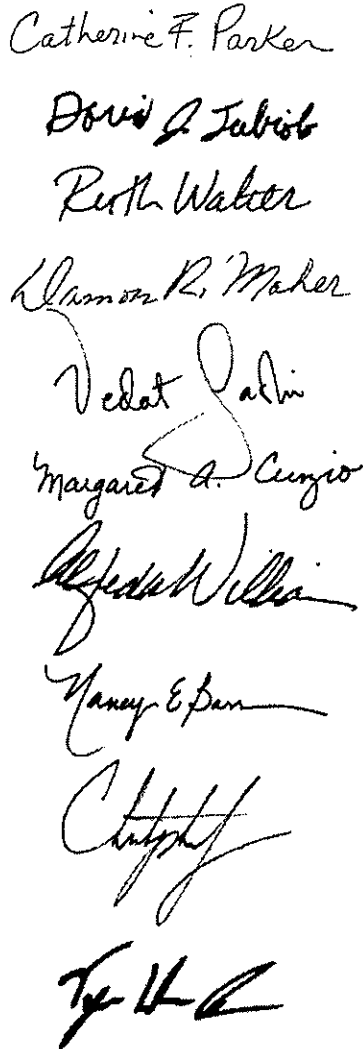 Catherine F. Parker
Doris J.
Ruth Walter
Damon R. Maher
Vedat
Margaret A. Cunzio
Alfreda Williams
Nancy E Barr
Christopher
Tyler